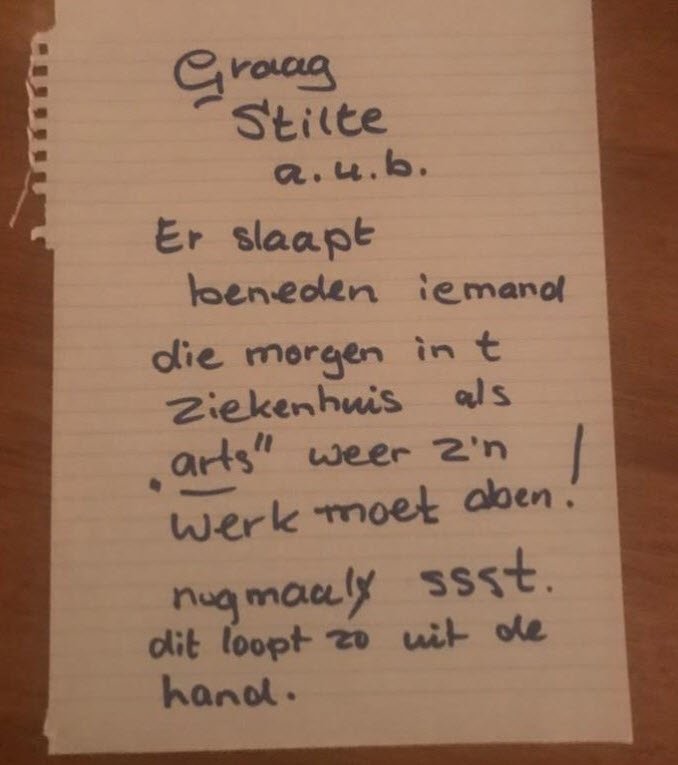 Graag
Stilte
a.u.b.
Er slaapt
beneden iemand
die morgen in t
ziekenhuis als
"arts" weer z'n
werk moet doen!
nugmaals ssst.
dit loopt zo uit de
hand.